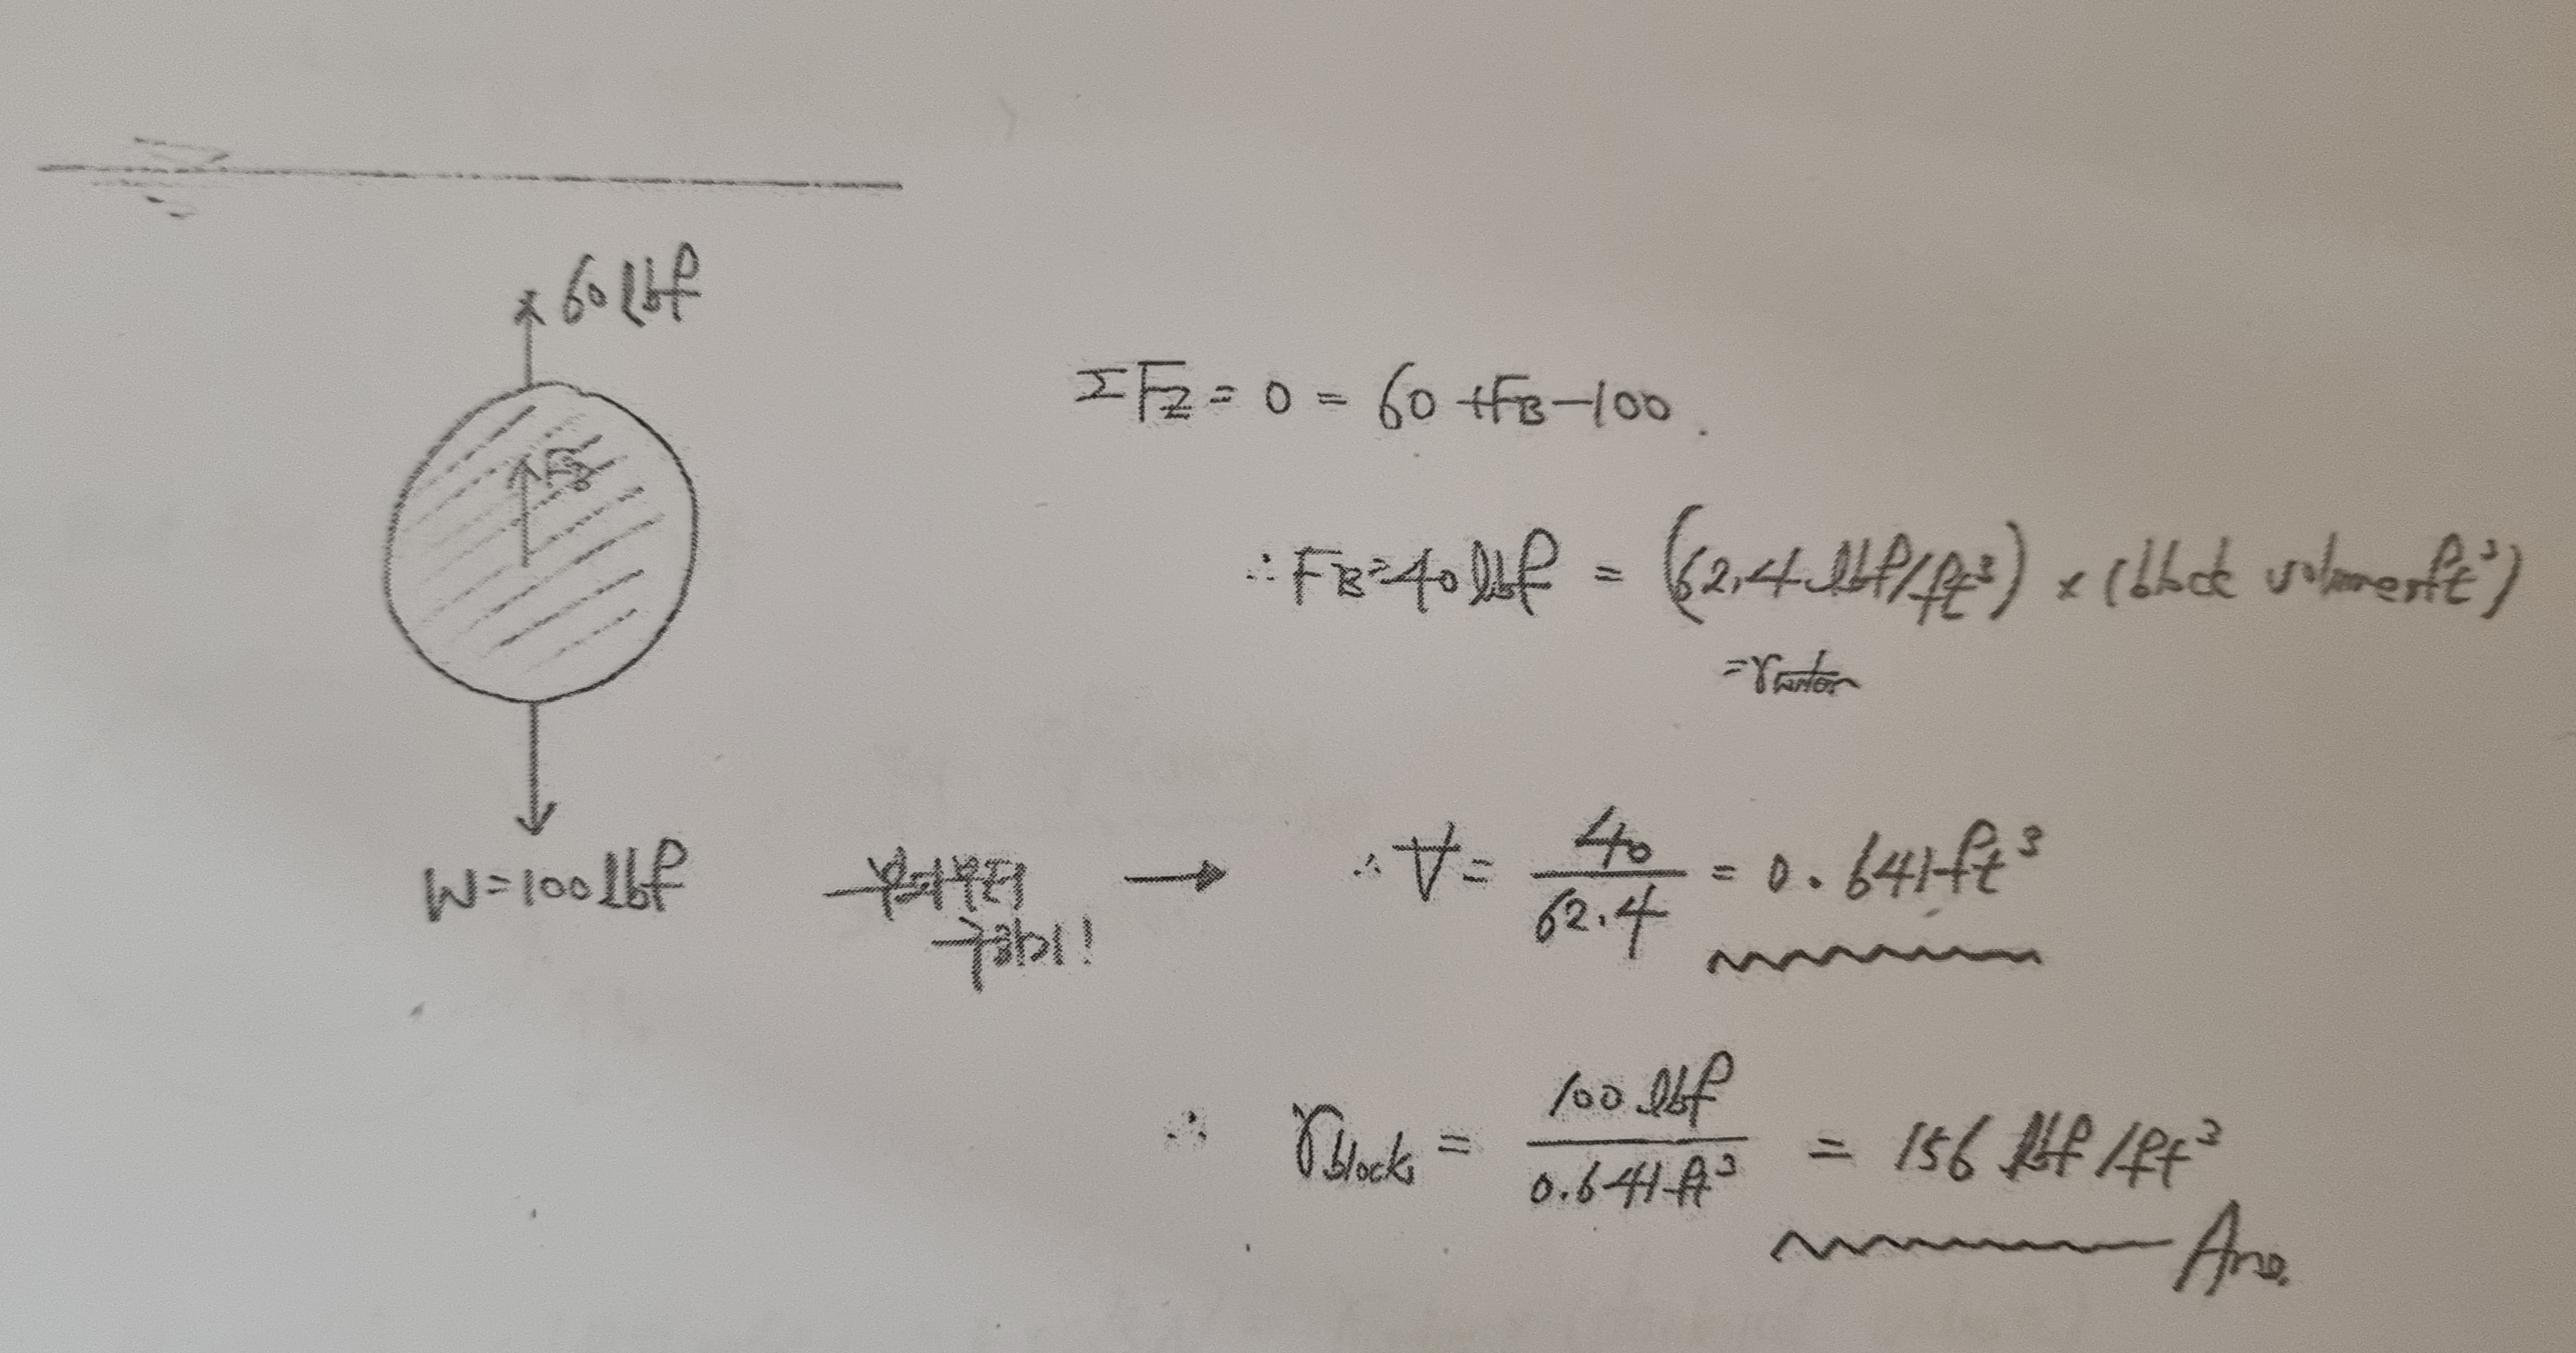 60 lbf
ΣFz = 0 = 60 + FB - 100.
FB
∴ FB = 40 lbf = (62.4 lbf/ft³) × (block volume, ft³)
= γwater
W = 100 lbf
구해보니! → ∴ V = 40/62.4 = 0.641 ft³
∴ γblock = 100 lbf / 0.641 ft³ = 156 lbf/ft³
Ans.